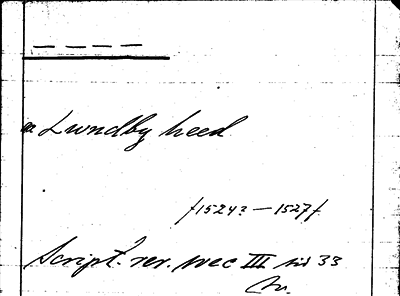 a Lundby heed
/1524? — 1527/
Script. rer. svec III sid 33